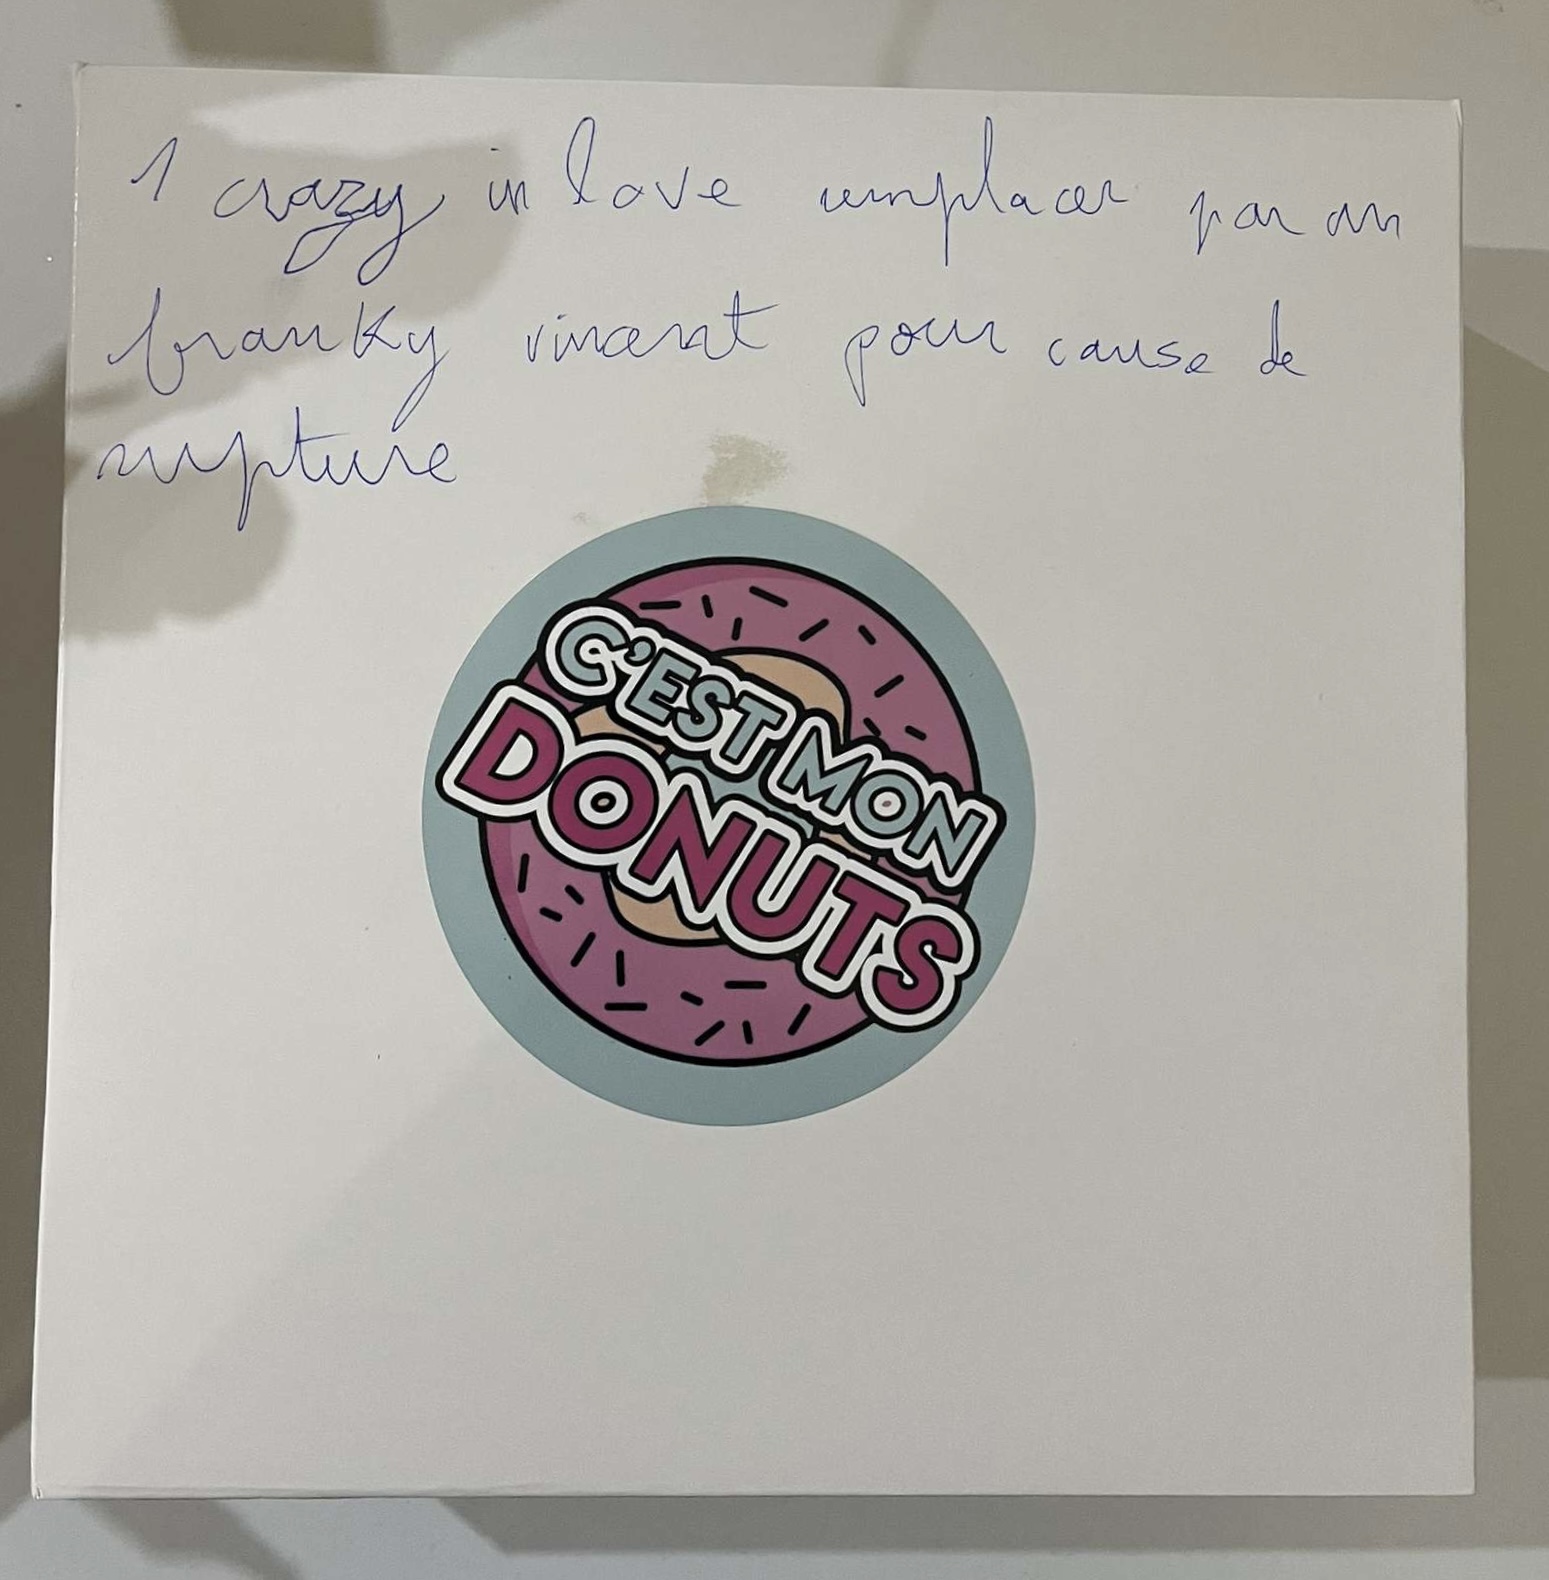 1 crazy in love remplacer par un
franky vincent pour cause de
rupture
C'EST MON
DONUTS